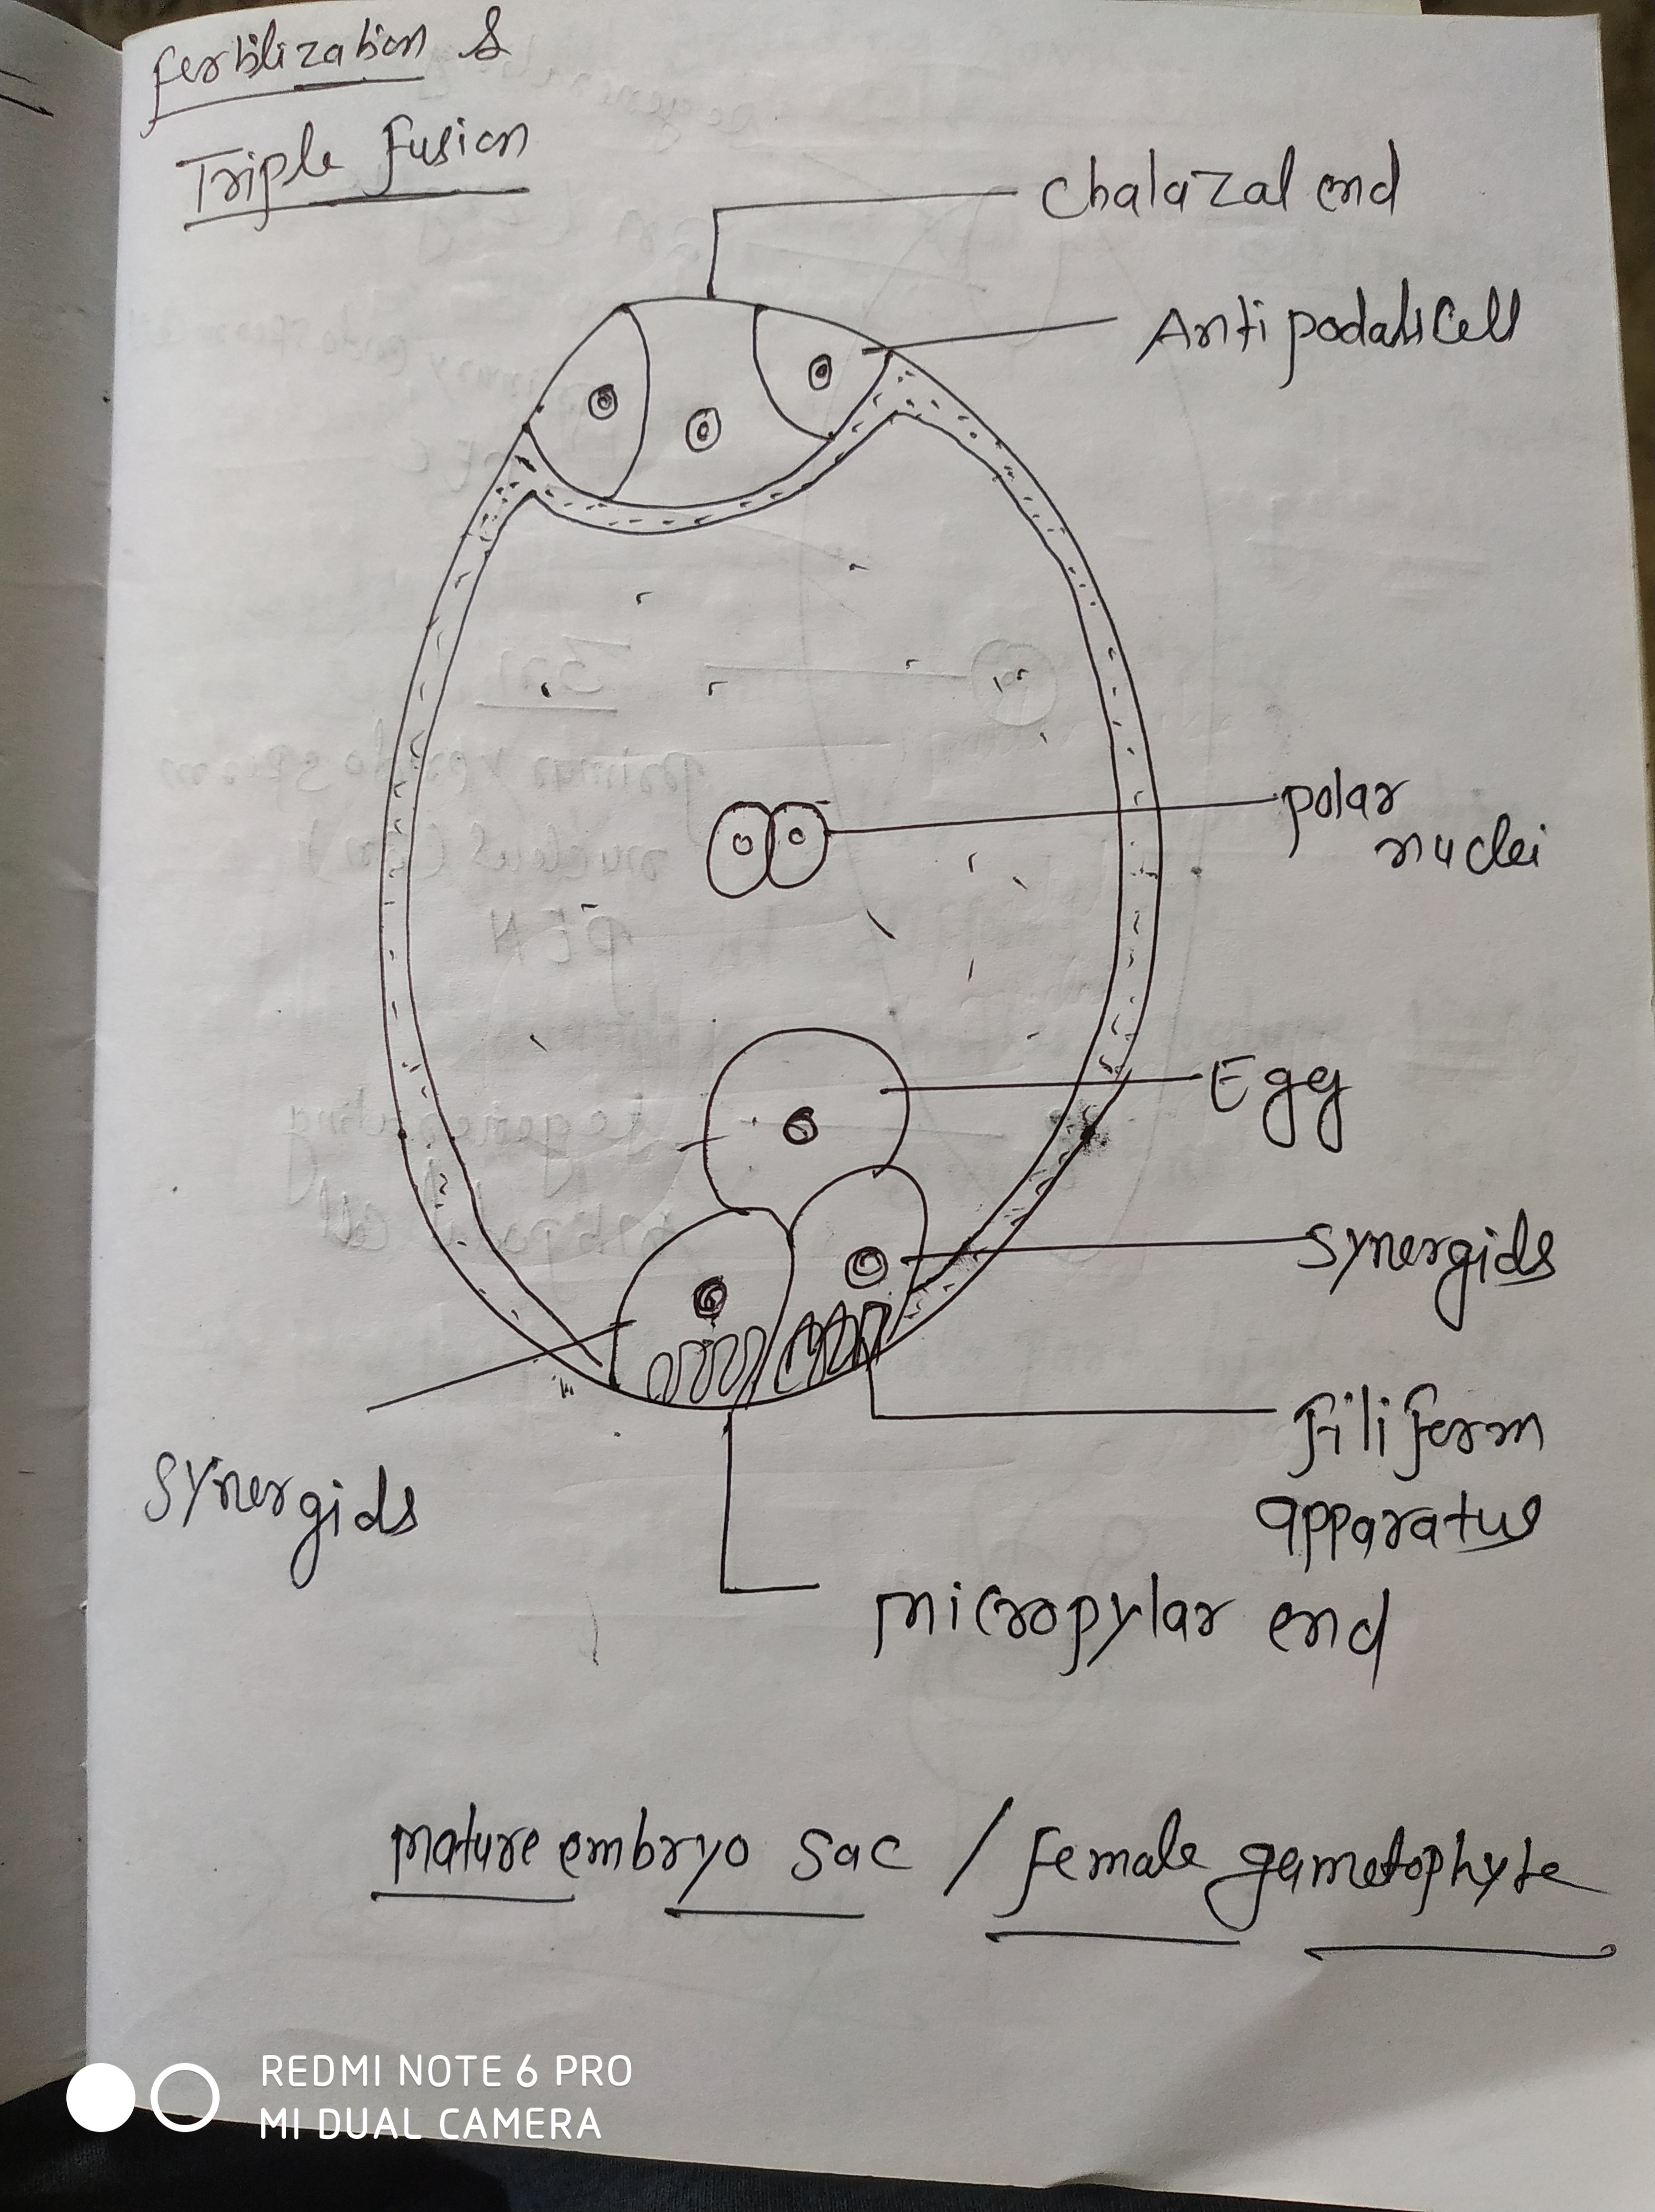 Fertilization &
Triple Fusion
Chalazal end
Antipodals Cell
polar
nuclei
Egg
Synergids
Filiform
apparatus
Synergids
micropylar end
Mature embryo sac / Female gametophyte
REDMI NOTE 6 PRO
MI DUAL CAMERA